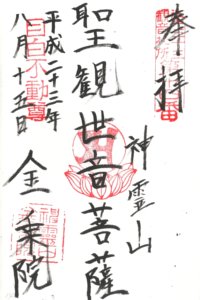 奉拝
神霊山
聖観世音菩薩
平成二十三年
八月十五日
目白不動尊
金乗院